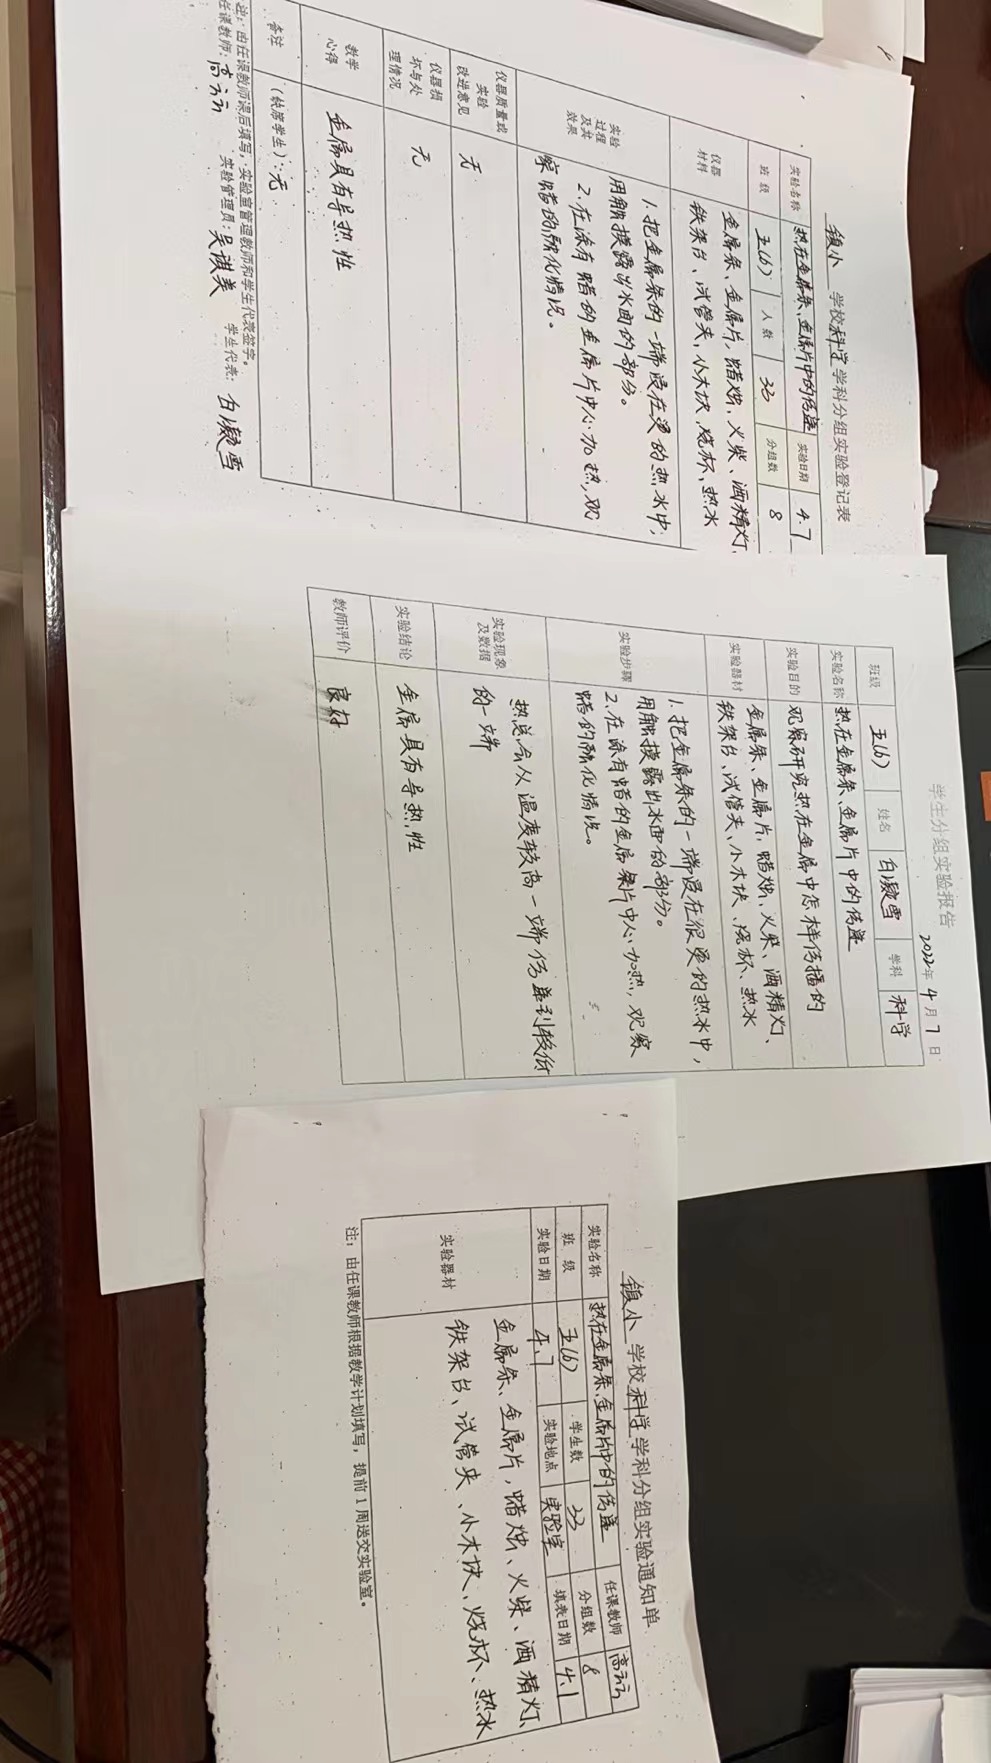 镇小 学校科学学科分组实验登记表
实验名称 热在金属条、金属片中的传递 实验日期 4.7
班 级 五(6) 人 数 33 分组数 8
仪器
材料
金属条、金属片、蜡烛、火柴、酒精灯、
铁架台、试管夹、小木块、烧杯、热水
实验
过程
及其
效果
1.把金属条的一端浸在烫的热水中,
用触摸露出水面的部分。
2.在涂有蜡的金属片中心加热,观
察蜡的融化情况。
仪器质量或
实验
改进意见
无
仪器损
坏与处
理情况
无
教学
心得
金属具有导热性
备注 (缺席学生):无
注:由任课教师课后填写,实验室管理教师和学生代表签字。
任课教师: 实验管理员:吴淇美 学生代表:白凝雪
学生分组实验报告
2022年 4月 7日
班级 五(6) 姓名 白凝雪 学科 科学
实验名称 热在金属条、金属片中的传递
实验目的 观察研究热在金属中怎样传播的
实验器材 金属条、金属片、蜡烛、火柴、酒精灯、
铁架台、试管夹、小木块、烧杯、热水
实验步骤
1.把金属条的一端浸在很烫的热水中,
用触摸露出水面的部分。
2.在涂有蜡的金属片中心加热,观察
蜡的融化情况。
实验现象
及数据
热总会从温度较高一端传递到较低
的一端
实验结论 金属具有导热性
教师评价 良好
镇小 学校科学学科分组实验通知单
实验名称 热在金属条、金属片中的传递 任课教师
班 级 五(6) 学生数 33 分组数 8
实验日期 4.7 实验地点 实验室 填表日期 4.1
实验器材
金属条、金属片,蜡烛、火柴、酒精灯、
铁架台、试管夹、小木块、烧杯、热水
注:由任课教师根据教学计划填写,提前1周送交实验室。